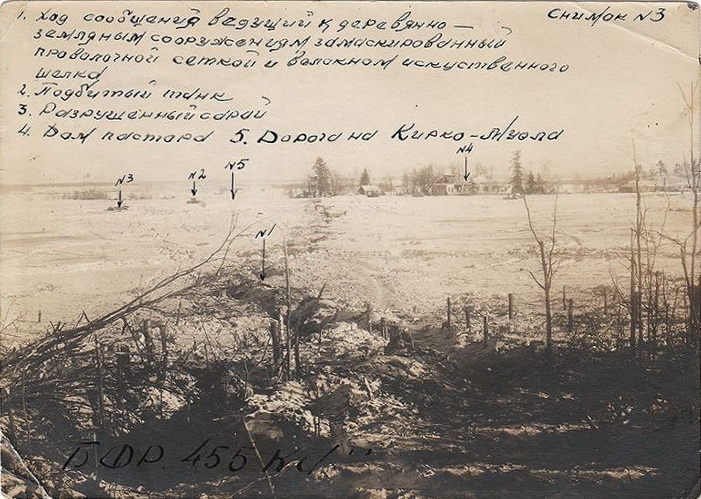 Снимок №3
1. Ход сообщения ведущий к деревянно –
земляным сооружениям замаскированный
проволочной сеткой и волокном искуственного
шелка
2. Подбитый танк
3. Разрушенный сарай
4. Дом пастора 5. Дорога на Кирко-Муола
№3
№2
№5
№4
№1
БФР. 455 К